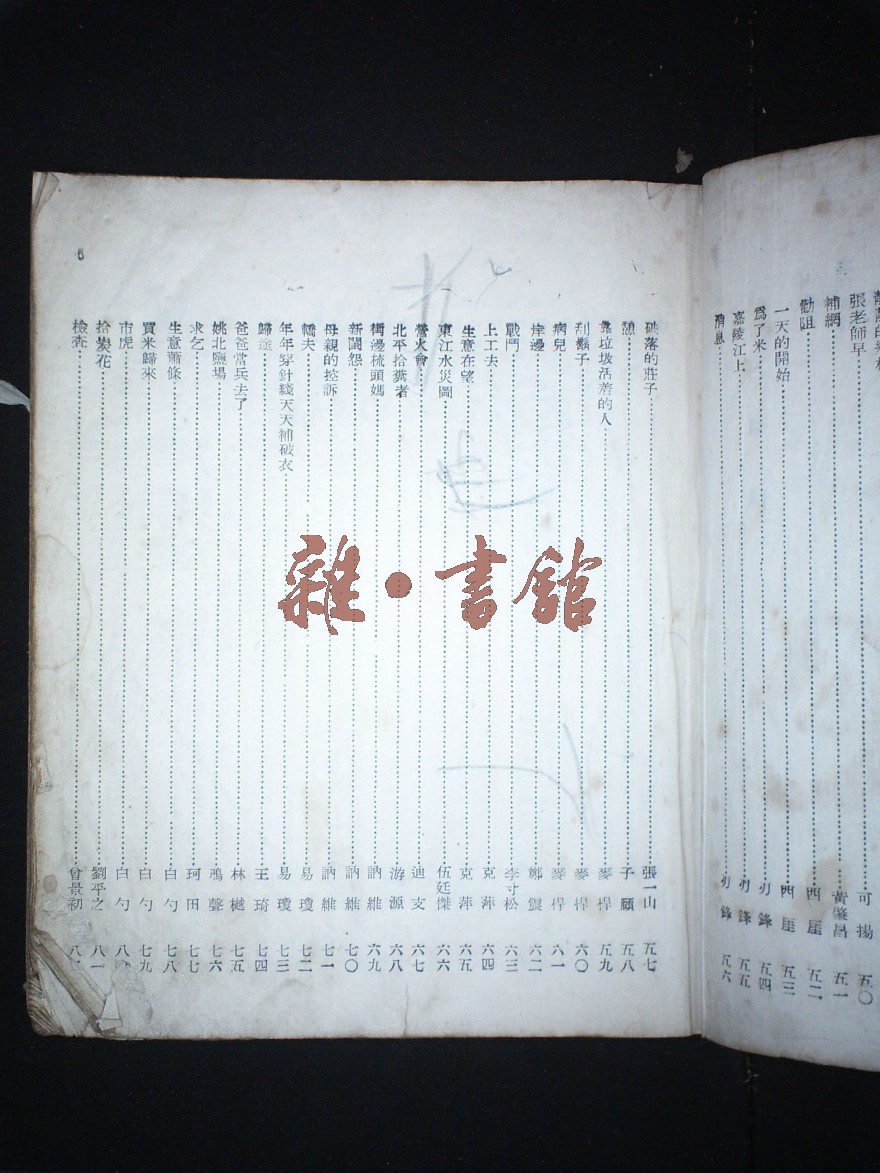 張老師早
可揚 五〇
補網 黃肇昌 五一
勸阻 西厓 五二
一天的開始 西厓 五三
爲了米 刃鋒 五四
嘉陵江上 刃鋒 五五
消息 刃鋒 五六
破落的莊子 張一山 五七
憩 子願 五八
靠垃圾活着的人 麥桿 五九
刮鬍子 麥桿 六〇
病兒 麥桿 六一
岸邊 鄭震 六二
戰鬥 李寸松 六三
上工去 克萍 六四
生意在望 克萍 六五
東江水災圖 伍廷傑 六六
營火會 迪支 六七
北平拾糞者 游源 六八
街邊梳頭媽 訥維 六九
新閨怨 訥維 七〇
母親的控訴 訥維 七一
轎夫 易瓊 七二
年年穿針綫天天補破衣 易瓊 七三
歸途 王琦 七四
爸爸當兵去了 林樾 七五
姚北鹽場 鴻聲 七六
求乞 珂田 七七
生意蕭條 白勺 七八
買米歸來 白勺 七九
市虎 白勺 八〇
拾煤花 劉平之 八一
檢查 曾景初 八
雜·書館